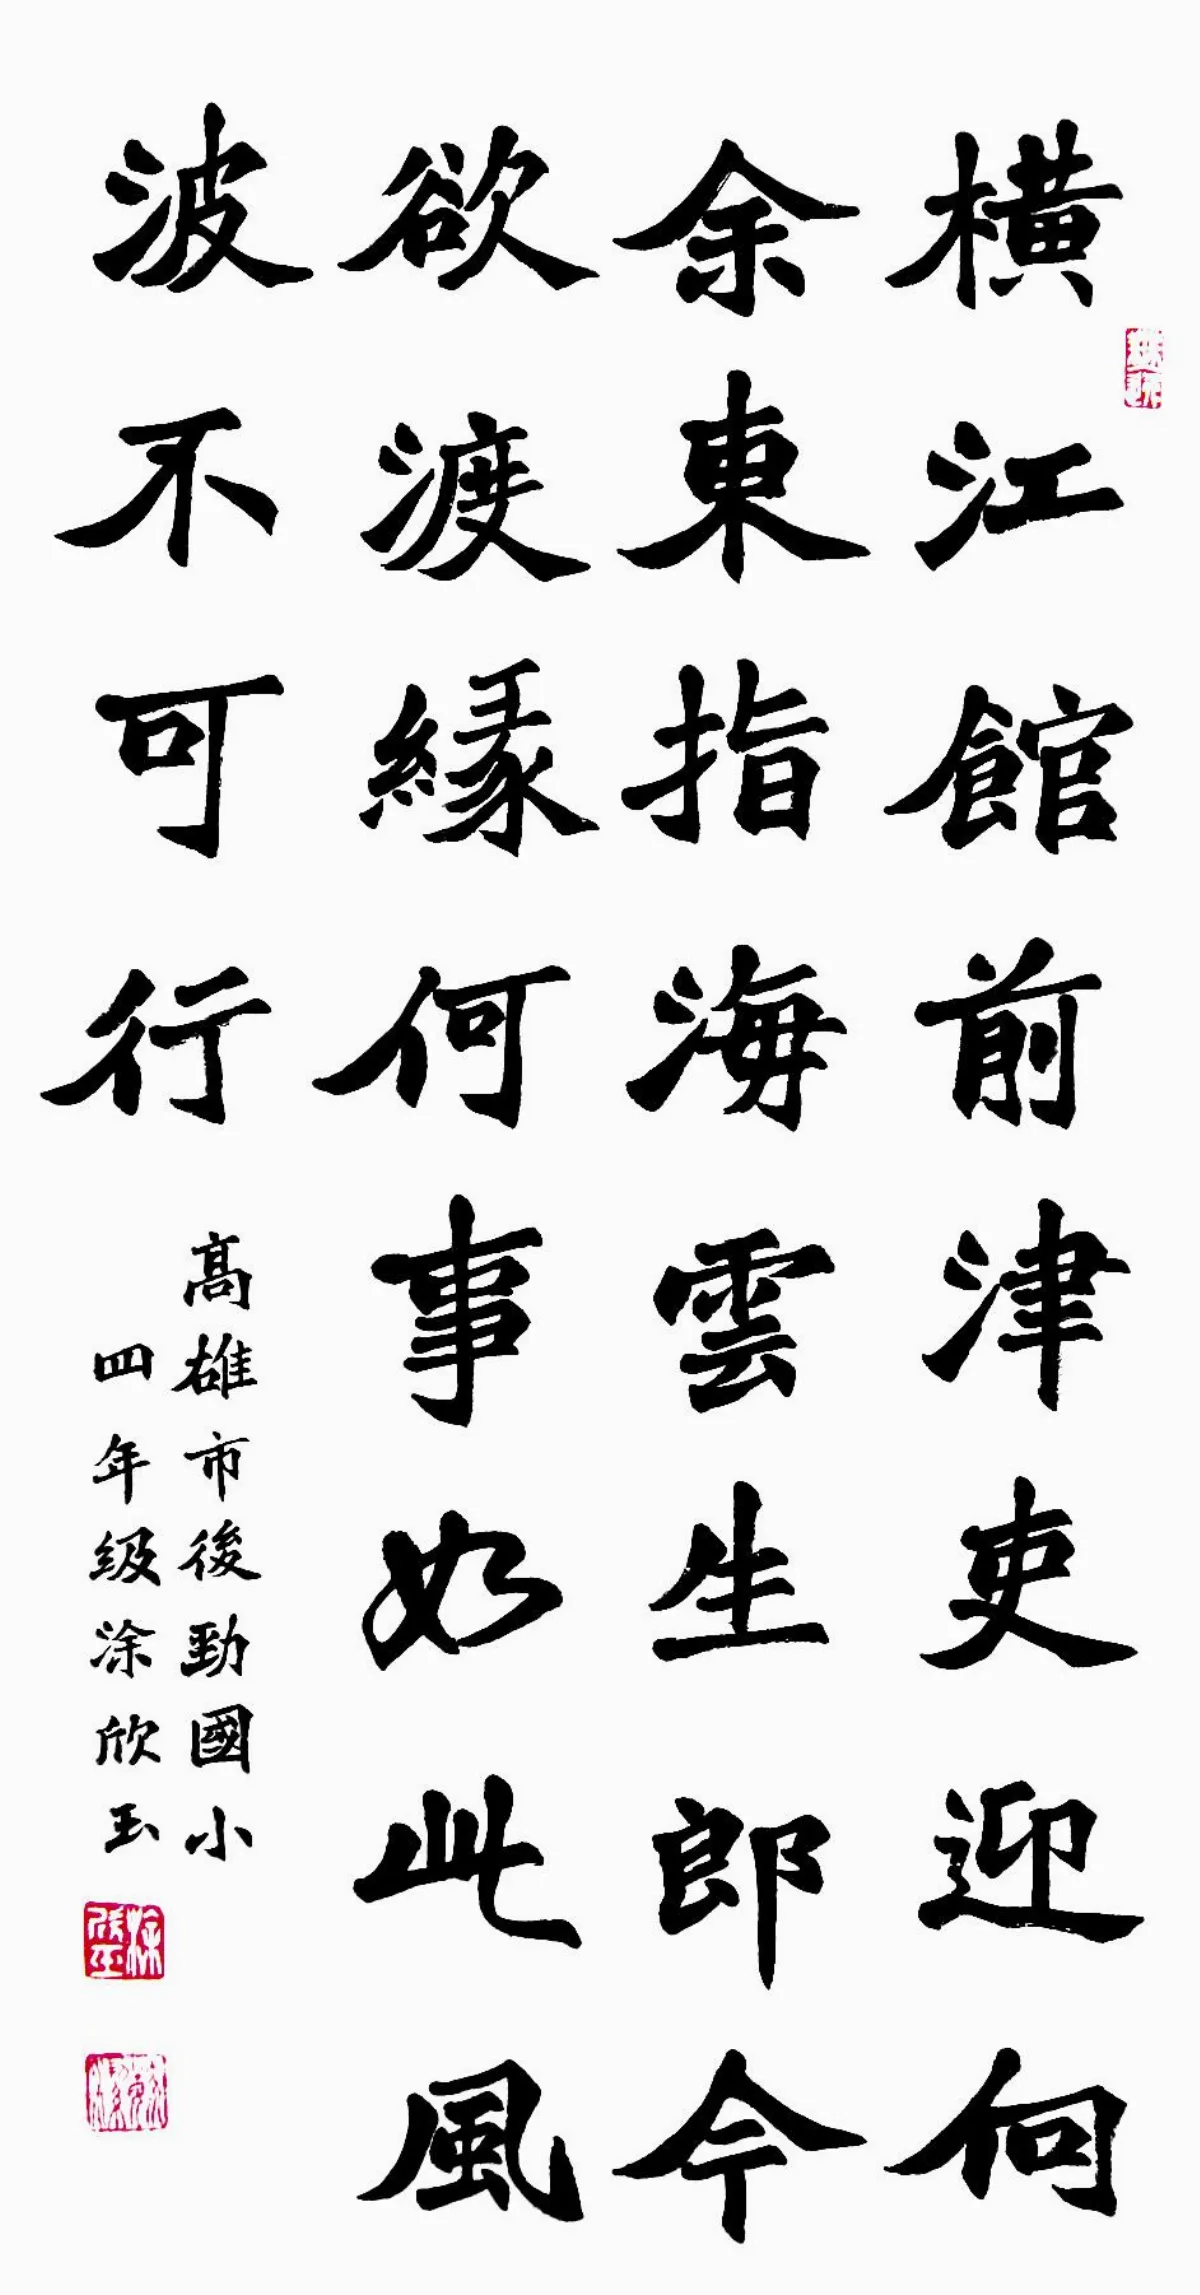 橫江館前津吏迎向
余東指海雲生郎今
欲渡緣何事如此風
波不可行
高雄市後勁國小
四年级涂欣玉